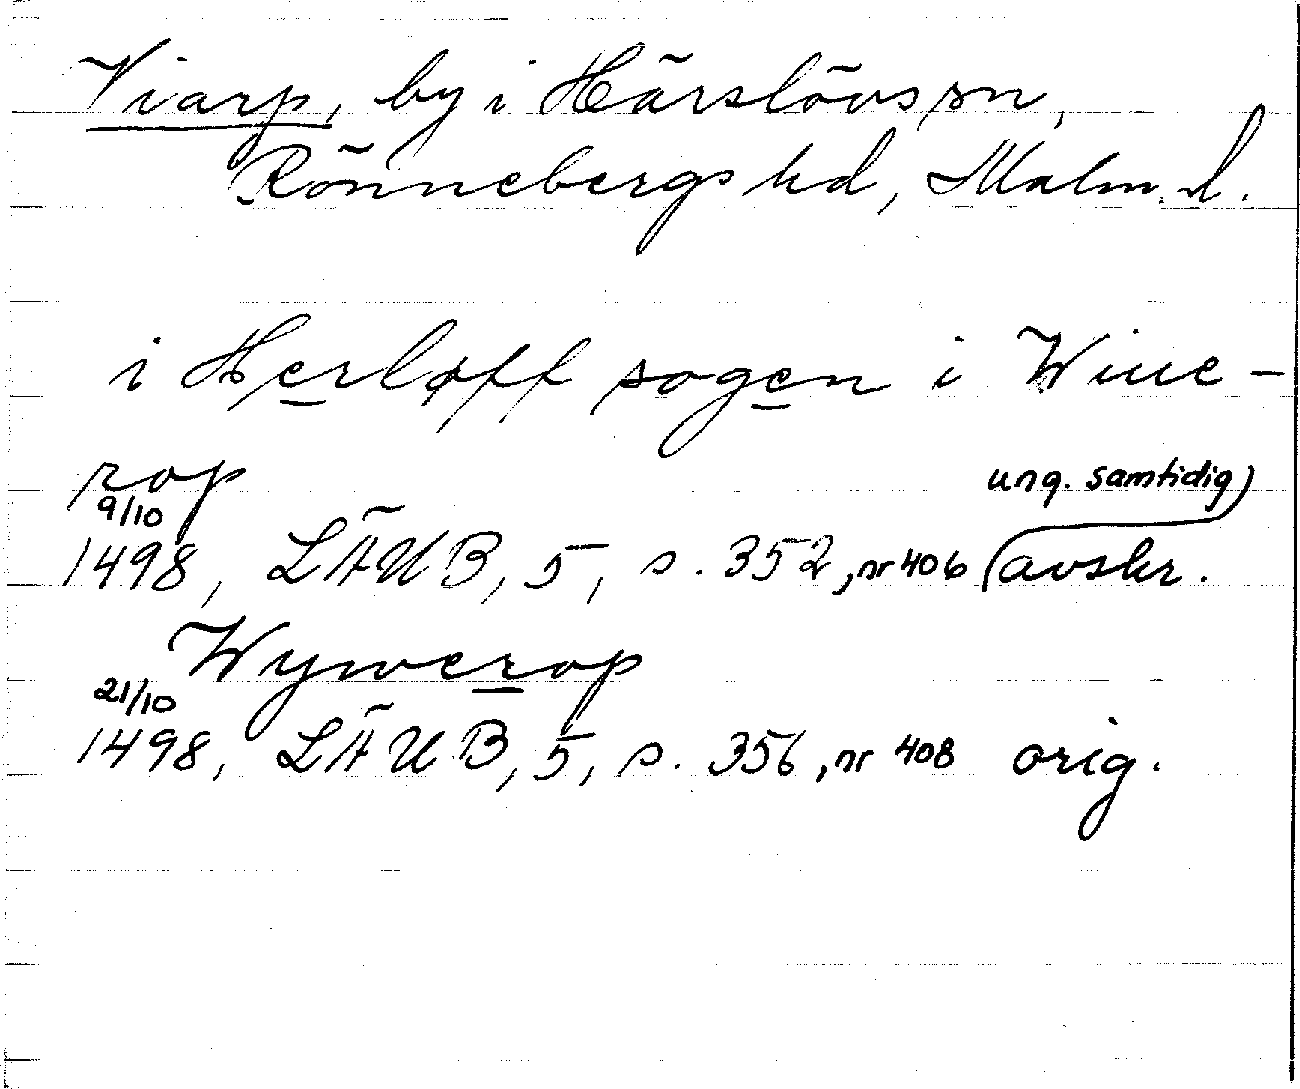 Viarp, by i Härslövs sn,
Rönnebergs hd, Malm. l.
i Herløff sogen i Wiue-
rop
ung. samtidig)
9/10
1498, LÄUB, 5, s. 352, nr 406 (avskr.
Wywerop
21/10
1498, LÄUB, 5, s. 356, nr 408 orig.